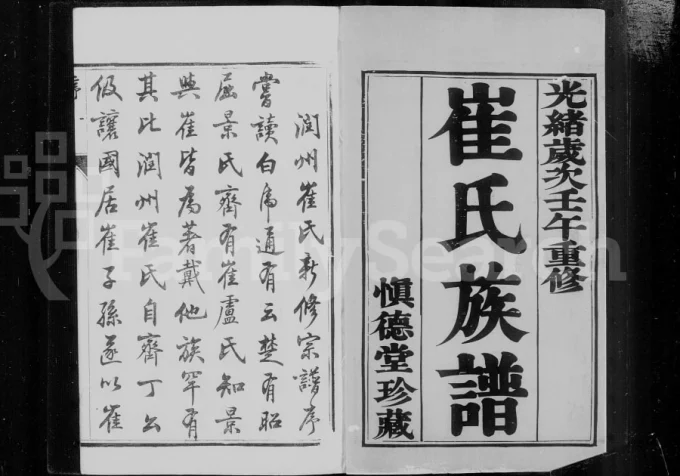 光緒歲次壬午重修
崔氏族譜
慎德堂珍藏
潤州崔氏新修宗譜序
嘗讀白虎通有云楚有昭
屈景氏齊有崔盧氏知景
與崔皆為著戴他族罕有
其比潤州崔氏自齊丁公
伋讓國居崔子孫遂以崔
序
一
FamilySearch